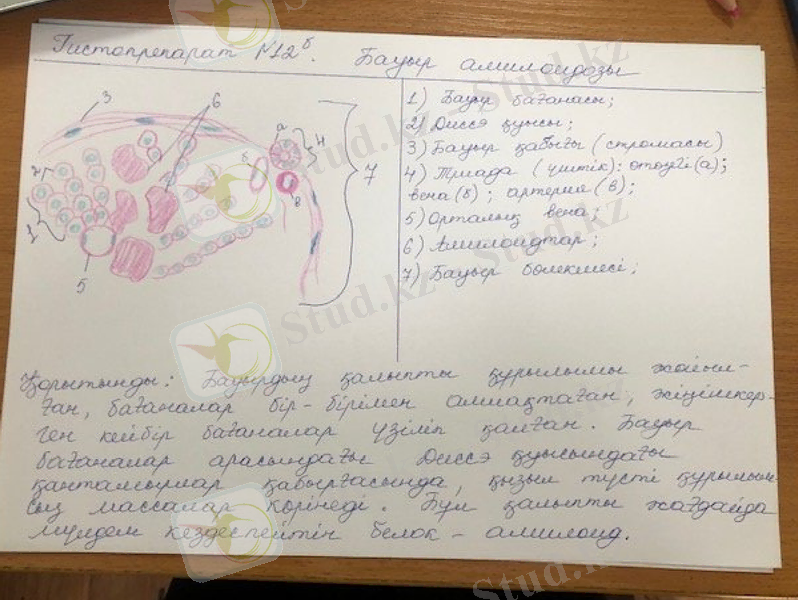 Гистопрепарат №12б. Бауыр амилоидозы
1) Бауыр бағанасы;
2) Диссэ қуысы;
3) Бауыр қабығы (стромасы)
4) Триада (үштік): өтөзегі(а);
вена(б); артерия(в);
5) Орталық вена;
6) Амилоидтар;
7) Бауыр бөлекшесі;
3
6
а
4
2
б
7
в
1
5
Қорытынды: Бауырдың қалыпты құрылымы жойыл-
ған, бағаналар бір-бірімен алшақтаған, жіңішкер-
ген кейбір бағаналар үзіліп қалған. Бауыр
бағаналар арасындағы Диссэ қуысындағы
қантамырлар қабырғасында, қызыл түсті құрылым-
сыз массалар көрінеді. Бұл қалыпты жағдайда
мүлдем кездеспейтін белок - амилоид.
Stud.kz
Stud.kz
Stud.kz
Stud.kz
Stud.kz
Stud.kz